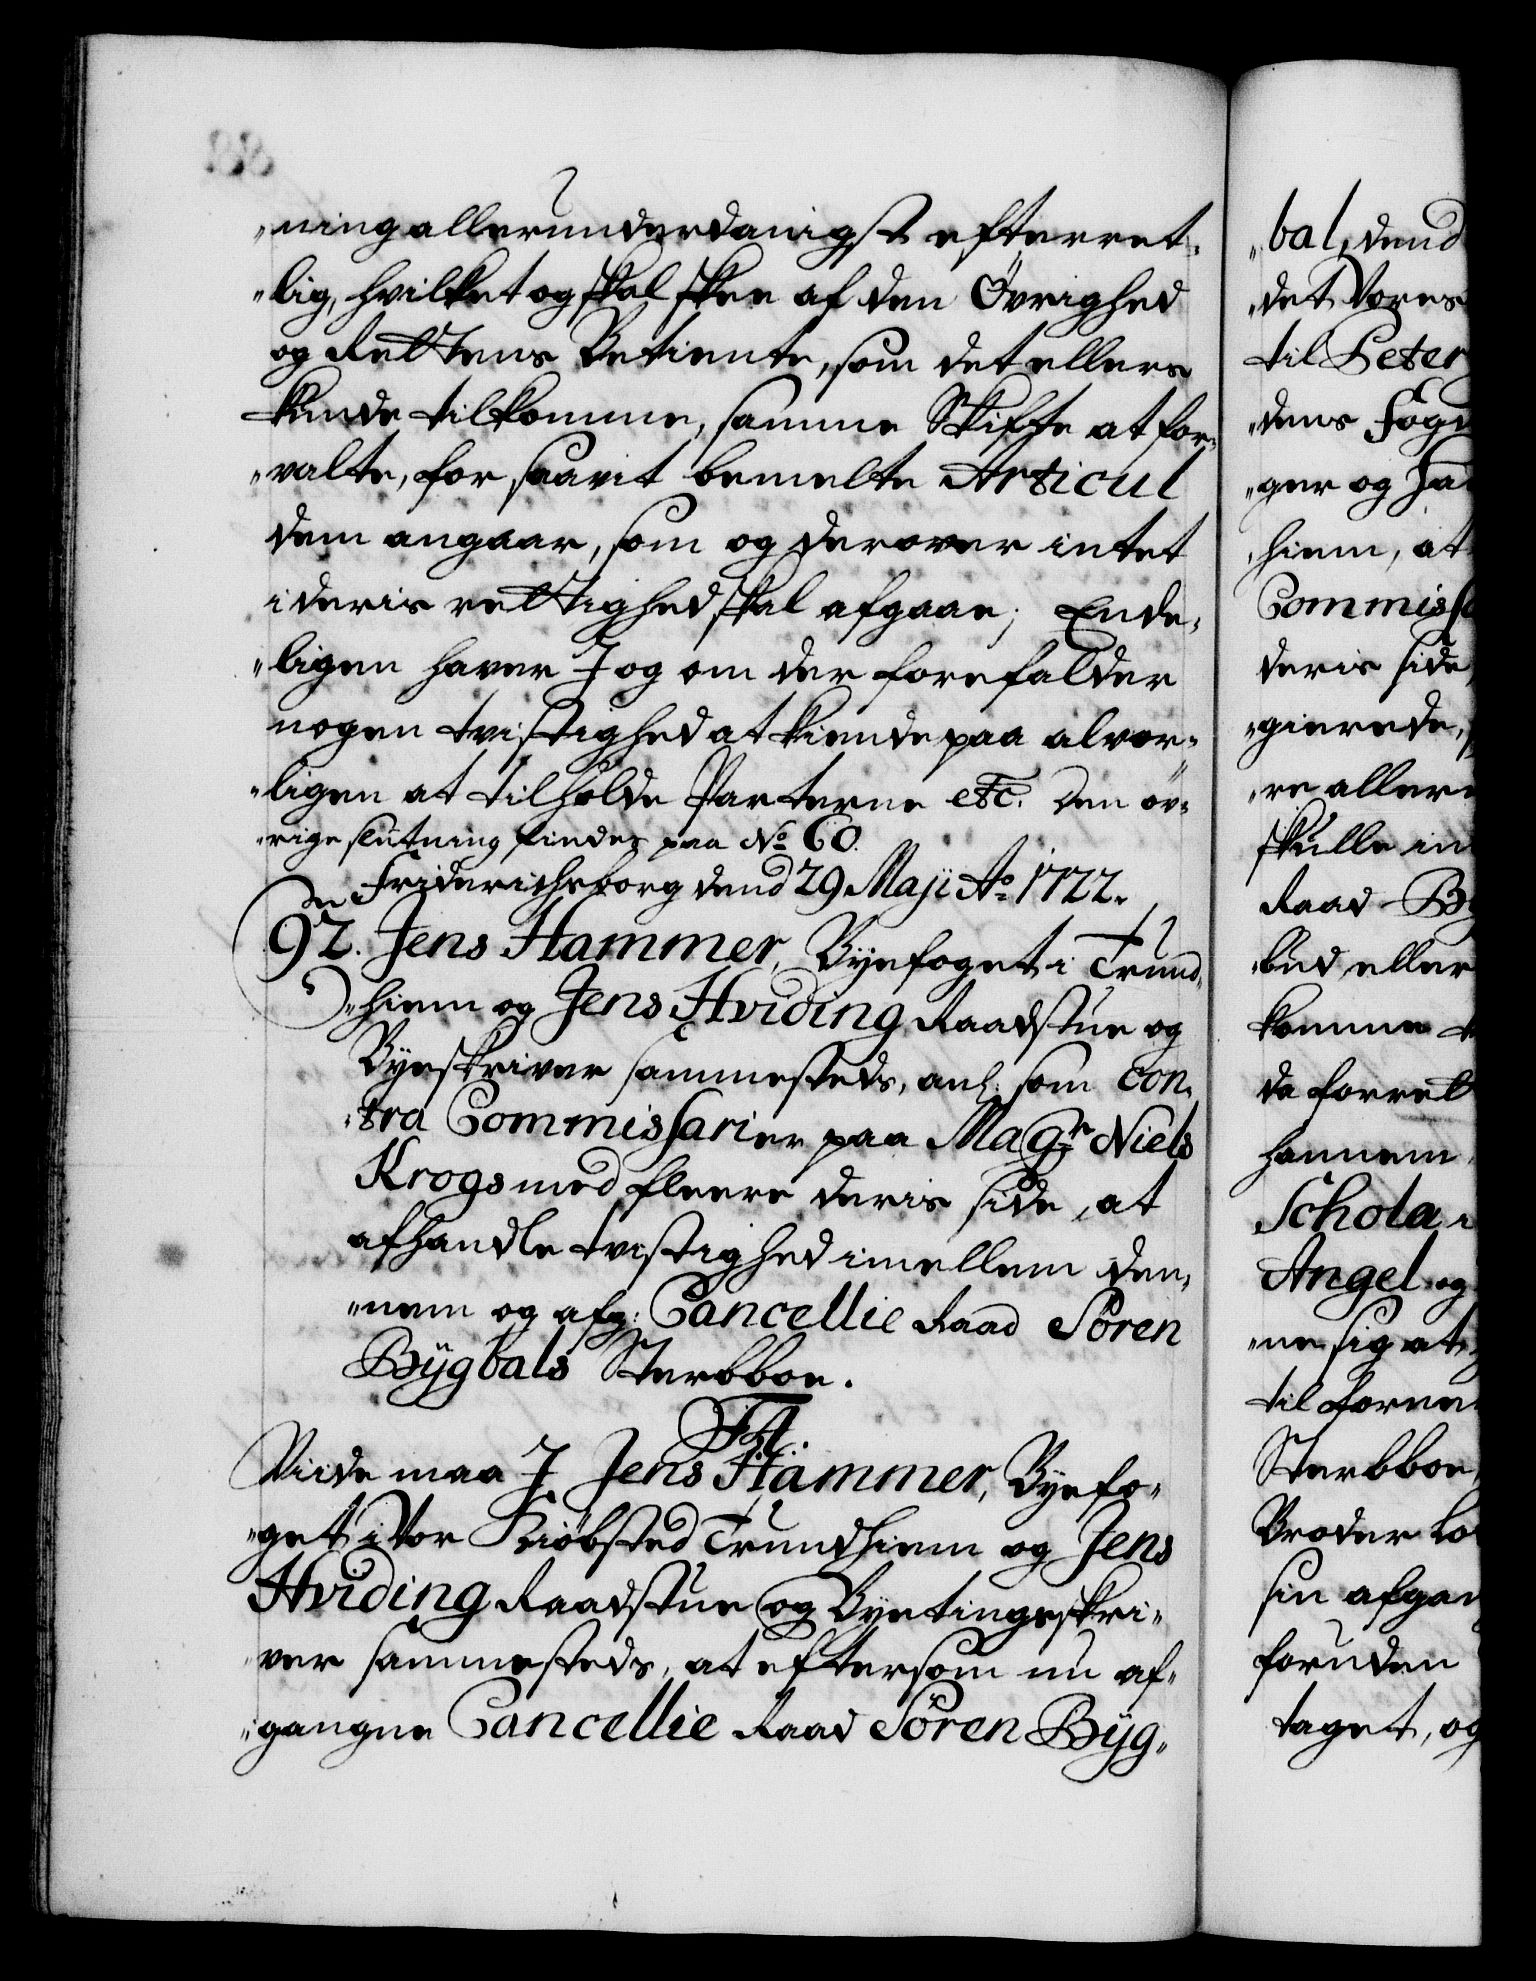 "ning allerunderdanigst efterret-
"lig, hvilket og skal skee af den Øvrighed
og Rettens Betiente, som det ellers
kunde tilkomme, samme Skifte at for-
"valte, for saavit bemelte Articul
dem angaar, som og derover intet
i deris rettighed skal afgaae; Ende-
"ligen haver I og om der forefalder
nogen tvistighed at kiende paa alvor-
"ligen at tilholde Parterne etc. Den øv-
"rige slutning findes paa No 60.
Friderichsborg dend 29 Maji Ao 1722.
92. Jens Hammer, Byefoget i Trund-
"hiem og Jens Hviding Raadstue og
Byeskriver sammesteds, anl: som Con-
"tra Commissarier paa Magr Niels
Krogs med fleere deris side, at
afhandle tvistighed imellem den-
"nem og afg: Cancellie Raad Sören
Bÿgbals Sterbboe.
F.4.
Viide maa I Jens Hammer, Byefo-
"get i Vor Kiøbsted Trundhiem og Jens
Hviding Raadstue og Byetingskri-
ver sammesteds, at eftersom nu af-
"gangne Cancellie Raad Sören Bÿg-
"bal, dend
"det Vores
til Peter
"dens Fog
"ger og Ha
"hiem, at
Commiss
deris side
"gierede,
"re aller
skulle in
Raad By
"bud eller
komme
da forret
hannem
Schola
Angel og
"ne sig at
til forne
Sterbboe
Broder
sin afgan
foruden
taget, og